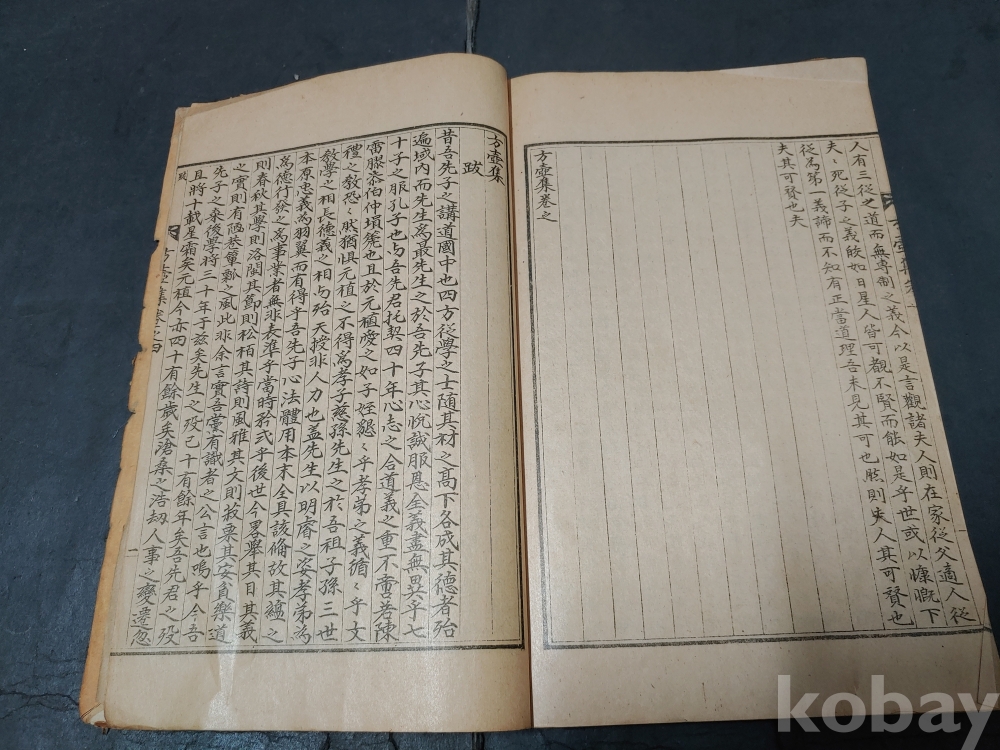 人有三從之道而無專制之義今以是言觀諸夫人則在家從父適人從
夫〻死從子之義皎如日星人皆可覩不賢而能如是乎世或以慷慨下
從爲第一義諦而不知有正當道理吾未見其可也然則夫人其可賢也
夫其可賢也夫
方壺集卷之
方壺集
跋
昔吾先子之講道國中也四方從學之士随其材之高下各成其德者殆
遍域內而先生爲最先生之於吾先子其心悅誠服恩全義盡無異乎七
十子之服孔子也与吾先君托契四十年心志之合道義之重不啻若陳
雷膠漆伯仲塤篪也且於元植愛之如子姪懇〻乎孝弟之義循〻乎文
禮之教恐〻然猶惧元植之不得爲孝子慈孫先生之於吾祖子孫三世
教學之相長德義之相与殆天授非人力也盖先生以明睿之姿孝弟爲
本原忠義爲羽翼而有得乎吾先子心法體用本末全具該備故其蘊之
爲德行發之爲事業者無非表準乎當時矜式乎後世今畧擧其目其義
則春秋其學則洛閩其節則松柏其詩則風雅其文則菽粟其安貧樂道
之實則有陋巷簞瓢之風此非余言實吾黨有識者之公言也嗚乎今吾
先子之棄後學將三十年于玆矣先生之歿已十有餘年矣吾先君之歿
且將十載星霜矣元植今亦四十有餘歲矣滄桑之浩劫人事之變遷忽
跋
方壺集卷之四
一
kobay